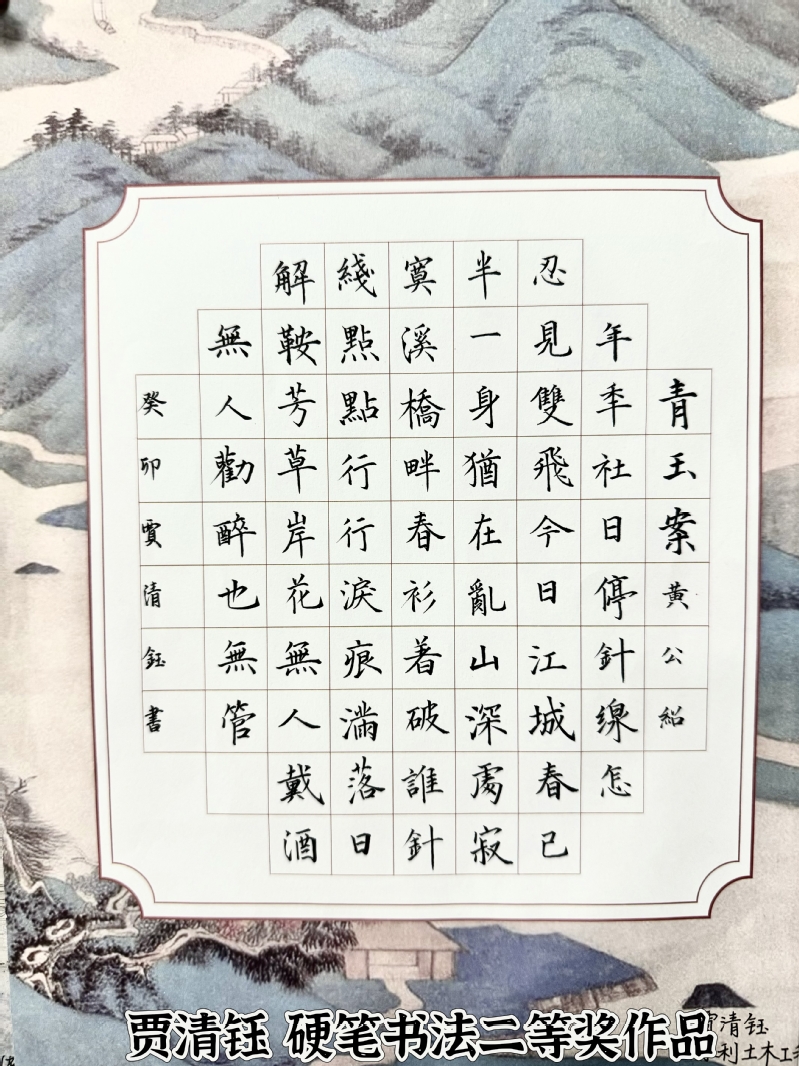 青玉案黄公紹
年秊社日停針線怎
忍見雙飛今日江城春已
半一身猶在亂山深處寂
寞溪橋畔春衫着破誰針
綫點點行行淚痕滿落日
解鞍芳草岸花無人戴酒
無人勸醉也無管
癸卯賈清鈺書
贾清钰 硬笔书法二等奖作品
清钰
利土木工